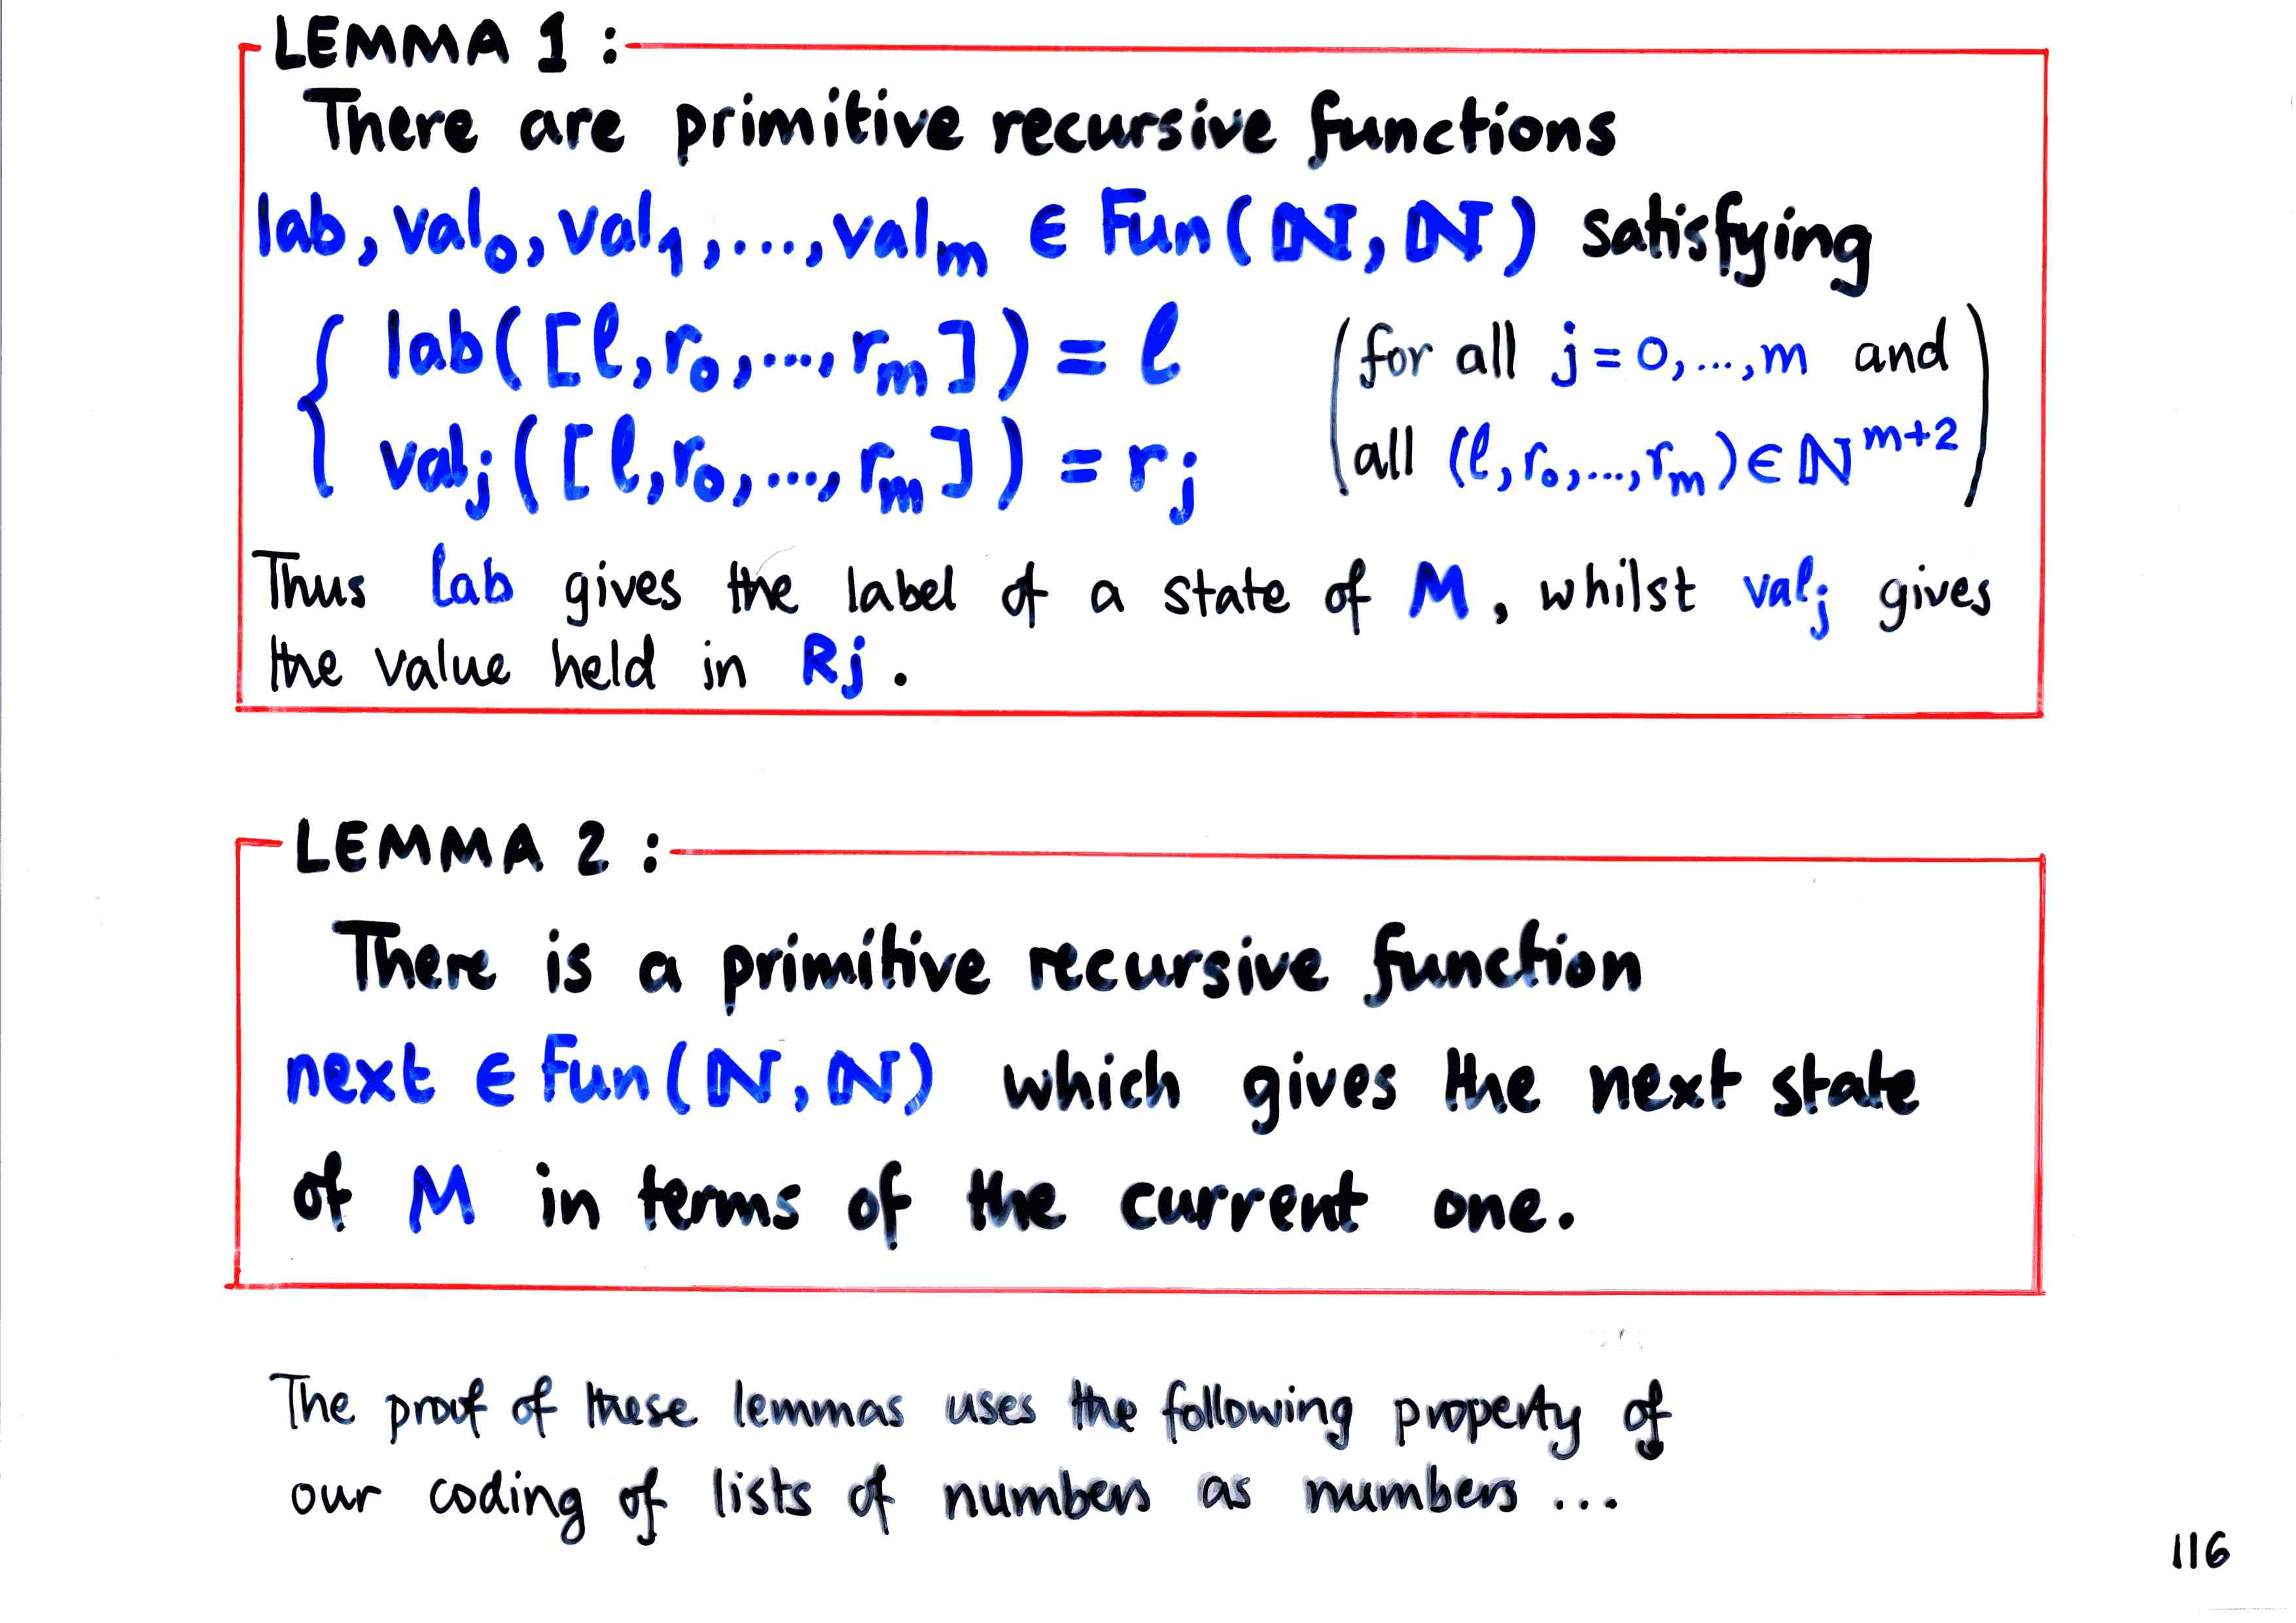 LEMMA 1 :
There are primitive recursive functions
lab, val₀, val₁, ..., valₘ ∈ Fun(ℕ, ℕ) satisfying
{ lab([ℓ, r₀, ..., rₘ]) = ℓ (for all j = 0, ..., m and
valⱼ([ℓ, r₀, ..., rₘ]) = rⱼ all (ℓ, r₀, ..., rₘ) ∈ ℕᵐ⁺²)
Thus lab gives the label of a state of M, whilst valⱼ gives
the value held in Rj.
LEMMA 2 :
There is a primitive recursive function
next ∈ Fun(ℕ, ℕ) which gives the next state
of M in terms of the current one.
The proof of these lemmas uses the following property of
our coding of lists of numbers as numbers ...
116